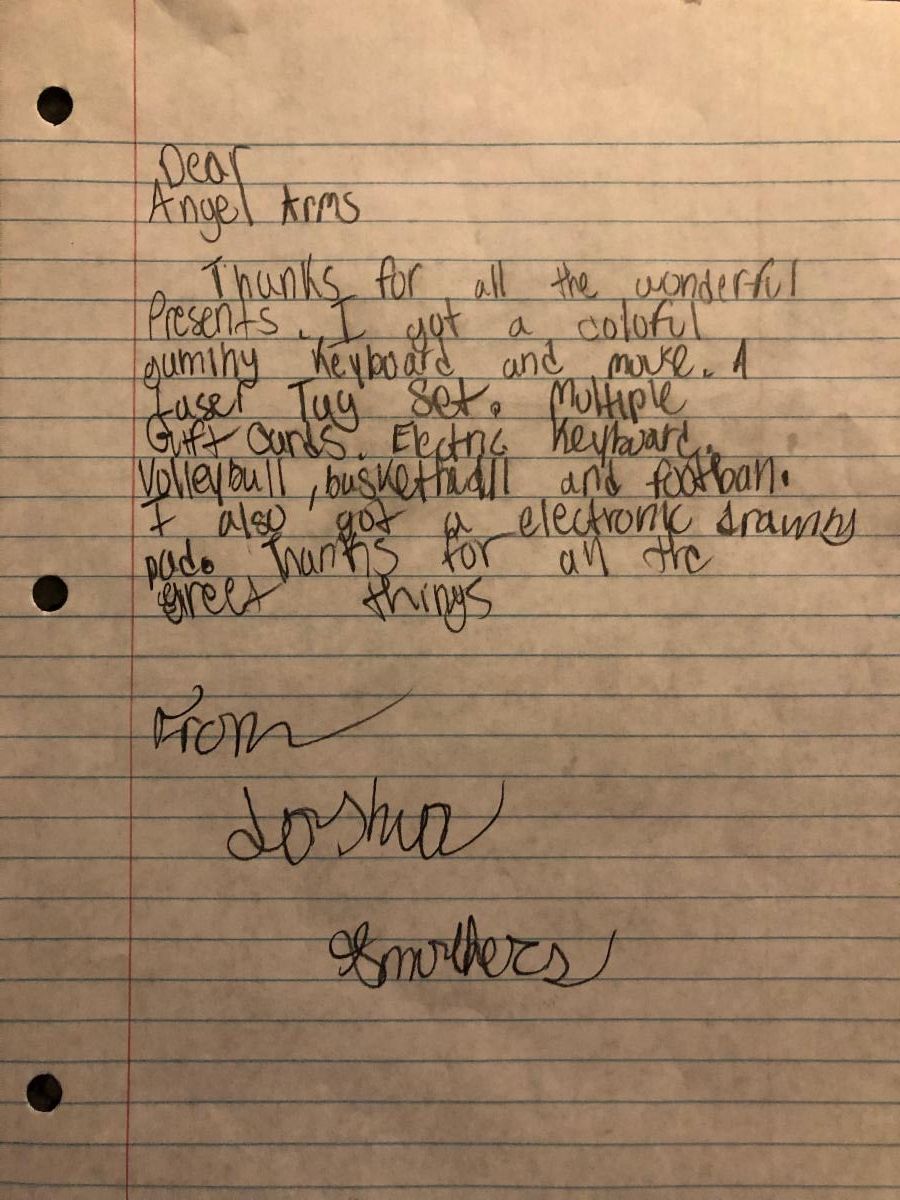 Dear
Angel Arms
Thanks for all the wonderful
Presents. I got a coloful
gaming keyboard and mouse. A
Laser Tag Set. Multiple
Gift Cards. Electric Keyboard.
Volleyball, basketball and football.
I also got a electronic drawing
pad. Thanks for all the
greet things
From
Joshua
Smithers